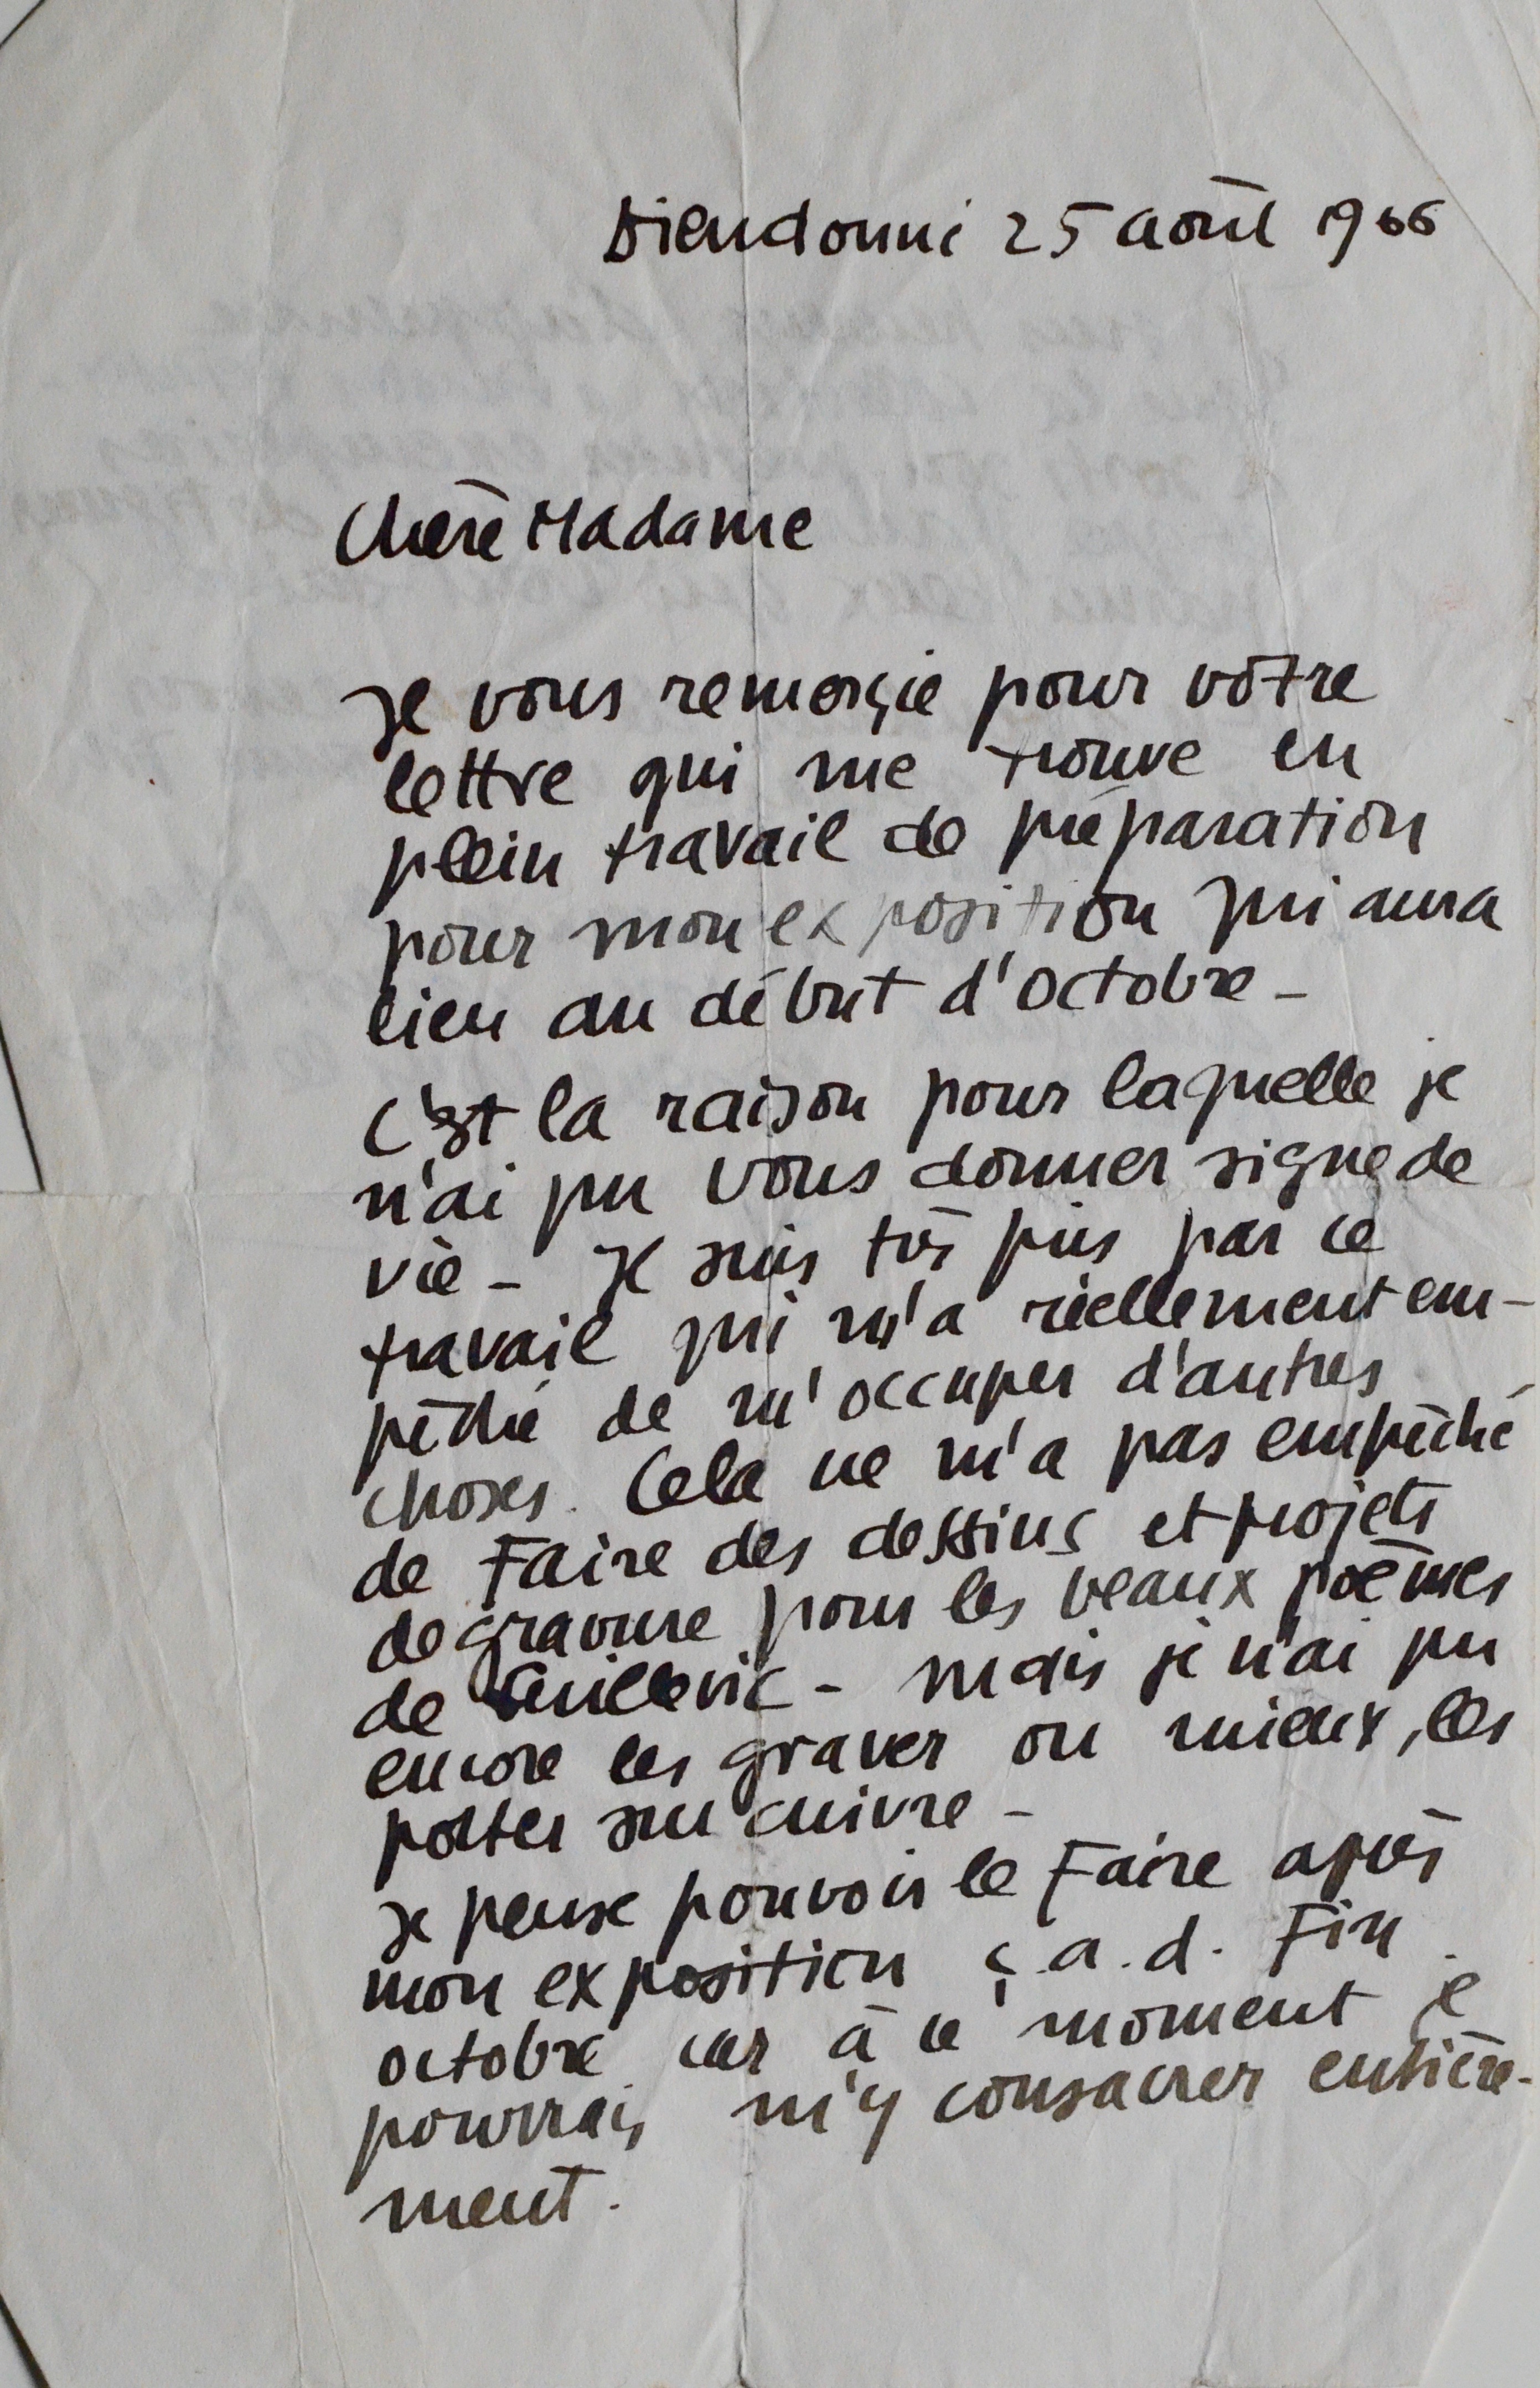 Dieudonné 25 août 1966
Chère Madame
Je vous remerçie pour vôtre
lettre qui me trouve en
plein travail de préparation
pour mon exposition qui aura
lieu au début d'octobre -
C'est la raison pour laquelle je
n'ai pu vous donner signe de
vie - Je suis très pris par ce
travail qui m'a réellement em-
pêché de m'occuper d'autres
choses. Cela ne m'a pas empêché
de faire des dessins et projets
de gravure pour les beaux poèmes
de Guillevic - mais je n'ai pu
encore les graver ou mieux, les
porter sur cuivre -
Je pense pouvoir le faire après
mon exposition ç.a.d. fin
octobre car à ce moment je
pourrais m'y consacrer entière-
ment.